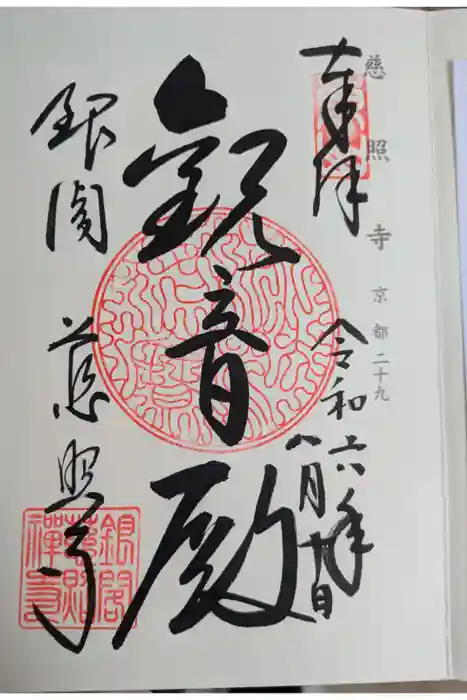 慈照寺 京都二十九
奉拝
令和六年
八月十九日
観音殿
銀閣 慈照寺
銀閣
慈照
禅寺